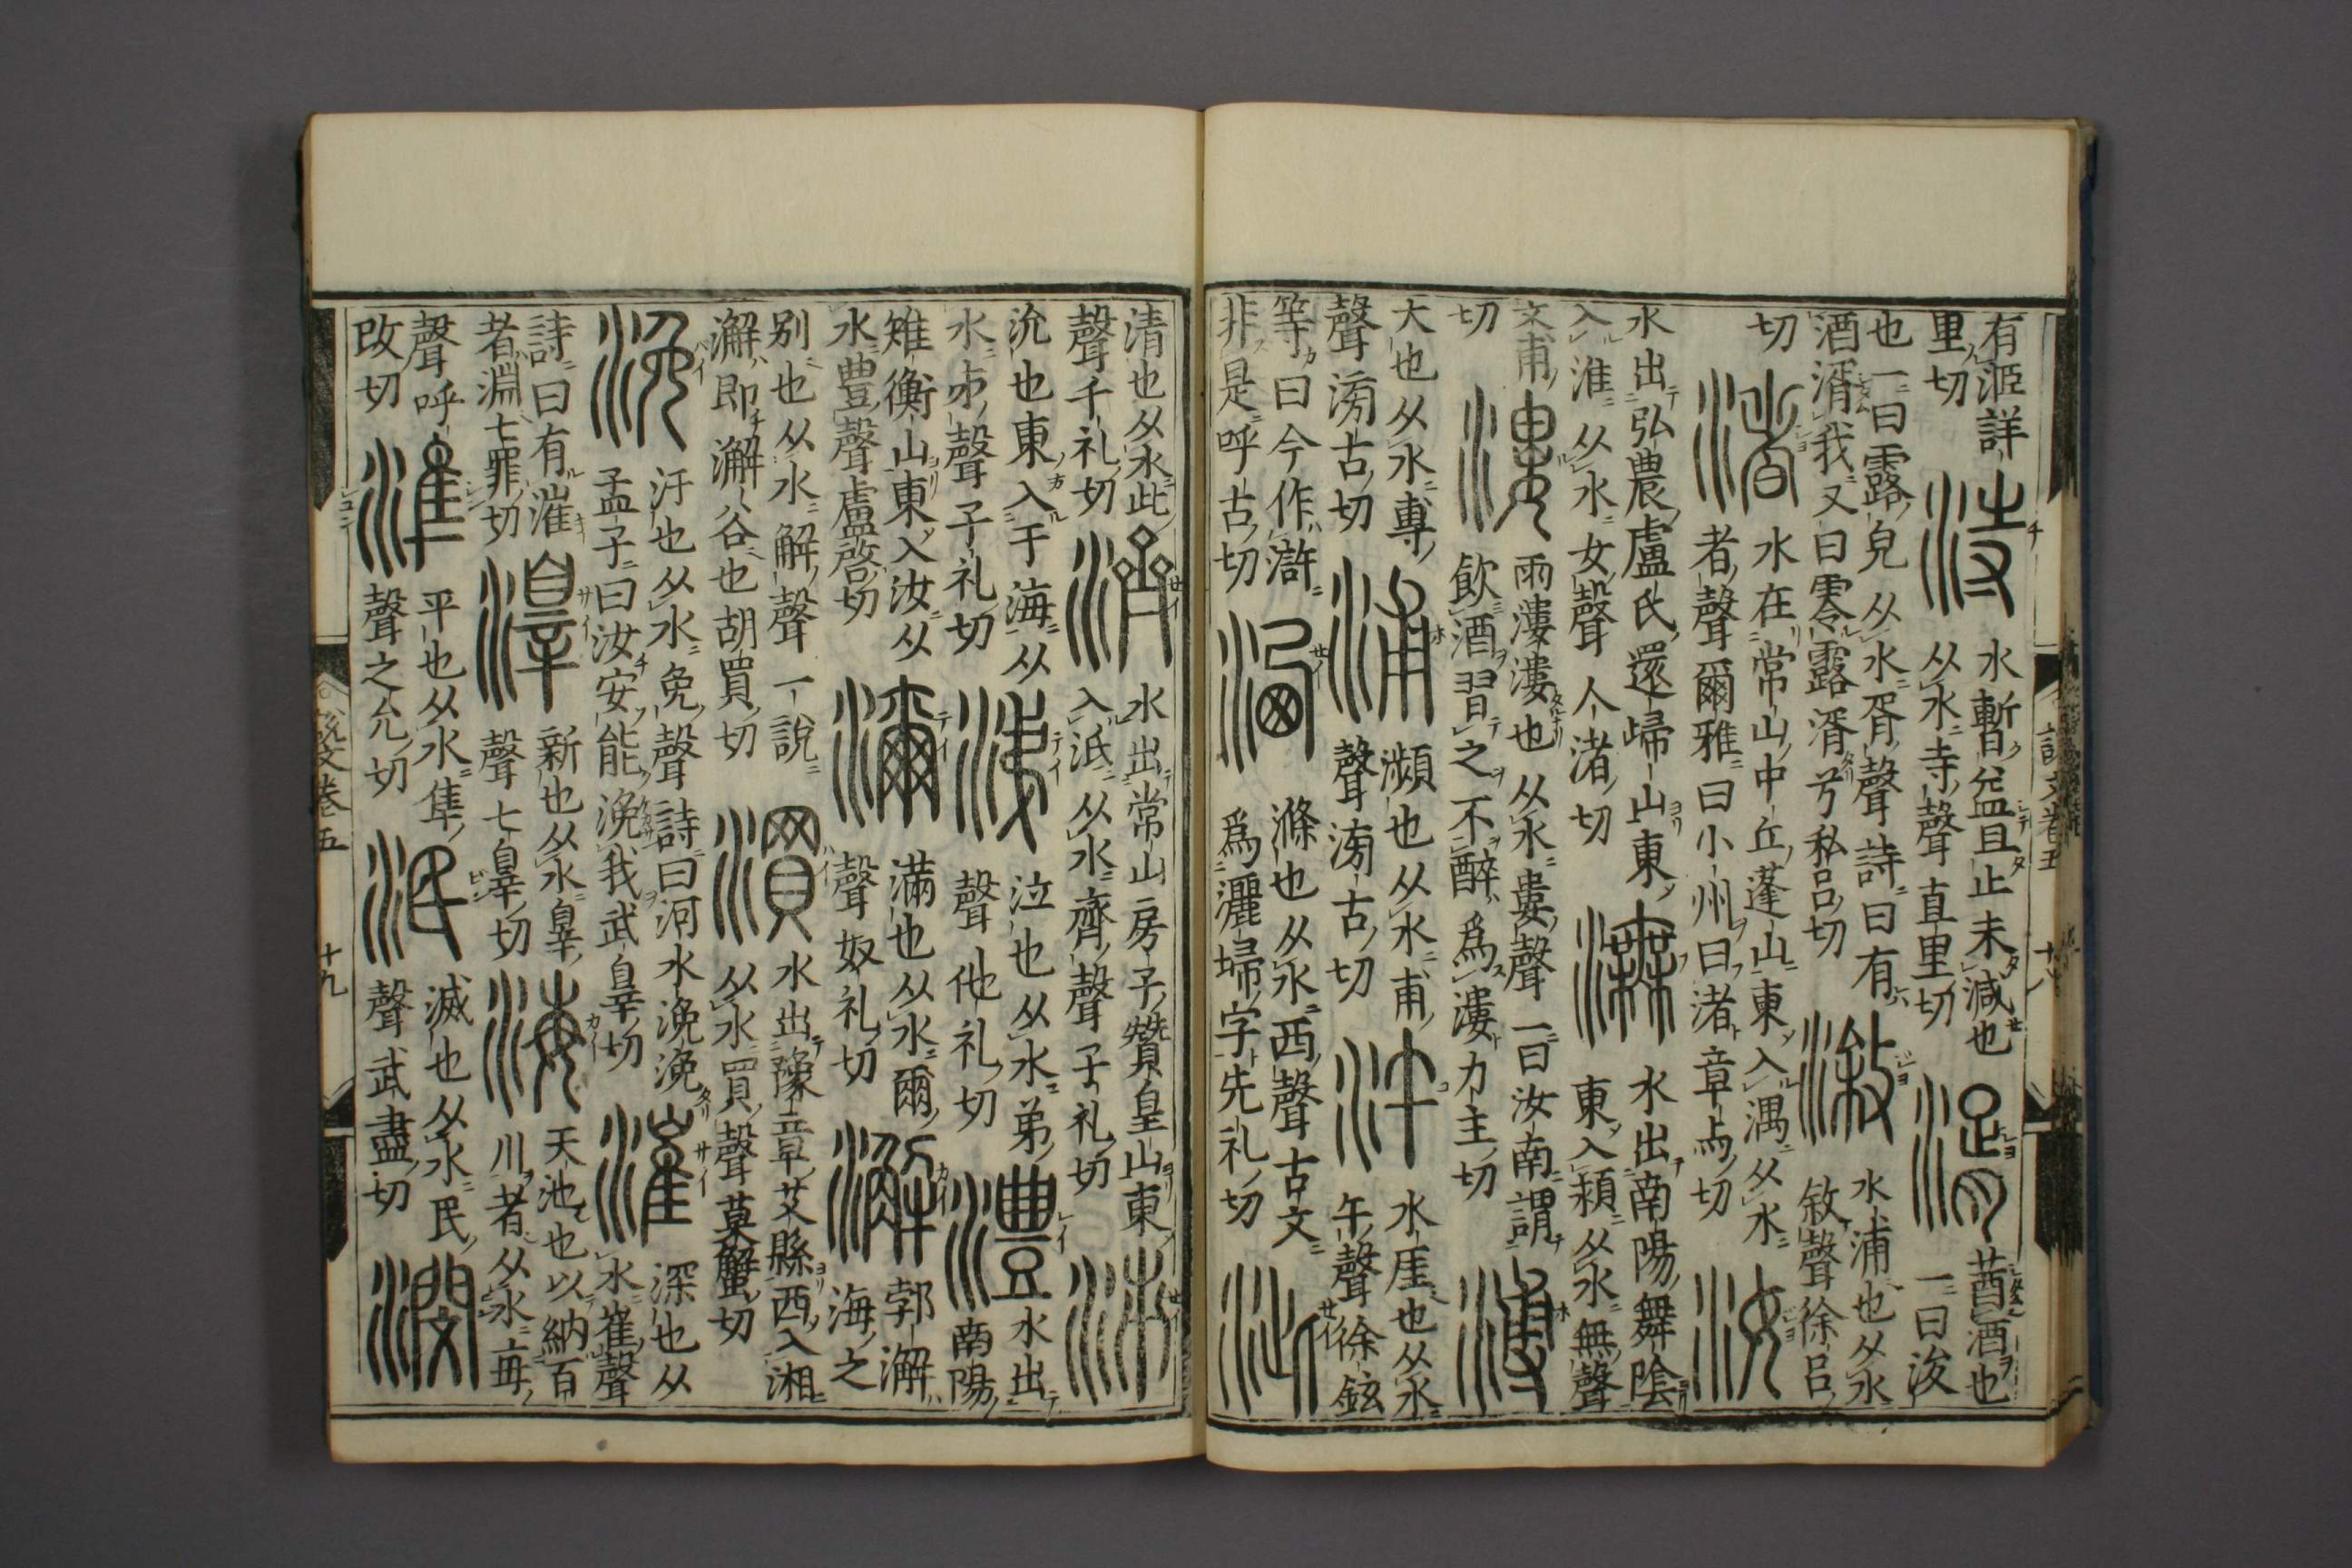 有洍詳
里切
洔
水暫益且止未减也
从水寺聲直里切
湑
莤酒也
一曰浚
也一曰露皃从水胥聲詩曰有
酒湑我又曰零露湑兮私呂切
漵
水浦也从水
敘聲徐呂
切
渚
水在常山中丘蓬山東入湡从水
者聲爾雅曰小州曰渚章与切
汝
水出弘農盧氏還歸山東
入淮从水女聲人渚切
潕
水出南陽舞陰
東入潁从水無聲
文甫
切
漊
雨漊漊也从水婁聲一曰汝南謂
飲酒習之不醉爲漊力主切
溥
大也从水尃
聲滂古切
浦
瀕也从水甫
聲滂古切
汻
水厓也从水
午聲徐鉉
等曰今作滸
非是呼古切
洒
滌也从水西聲古文
爲灑埽字先礼切
泚
清也从水此
聲千礼切
濟
水出常山房子贊皇山東
入泜从水齊聲子礼切
泲
沇也東入于海从
水𠂔聲子礼切
涕
泣也从水弟
聲他礼切
澧
水出
南陽
雉衡山東入汝从
水豊聲盧啓切
濔
滿也从水爾
聲奴礼切
澥
郣澥
海之
别也从水解聲一說
澥即澥谷也胡買切
水出豫章艾縣西入湘
从水買聲莫蟹切
浼
汙也从水免聲詩曰河水浼浼
孟子曰汝安能浼我武辠切
漼
深也从
水崔聲
詩曰有漼
者淵七罪切
㵏
新也从水辠
聲七辠切
海
天池也以納百
川者从水每
聲呼
改切
準
平也从水隼
聲之允切
泯
滅也从水民
聲武盡切
潣
說文卷五
十九